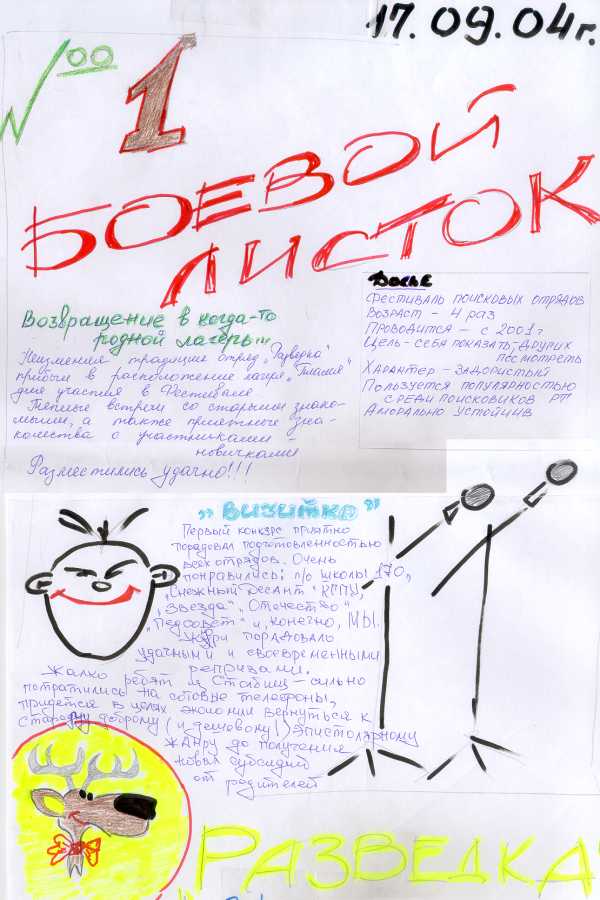 17.09.04г.
№ 1
БОЕВОЙ
ЛИСТОК
Возвращение в когда-то
родной лагерь...
Неизменно традиции отряд „Разведка"
прибыл в расположение лагеря „Пламя"
для участия в Фестивале.
Тёплые встречи со старыми знако-
мыми, а также приятные зна-
комства с участниками -
новичками
Разместились удачно!!!
Досье
Фестиваль поисковых отрядов
Возраст - 4 раз
Проводится - с 2001 г
Цель - себя показать, других
посмотреть
Характер - задористый
Пользуется популярностью
среди поисковиков РТ
Аморально устойчив
„Визитка"
Первый конкурс приятно
порадовал подготовленностью
всех отрядов. Очень
понравились: п/о школы 170,
„Снежный десант" КГПУ,
„Звезда", „Отечество"
„Педсовет" и, конечно, МЫ.
Жюри порадовало
удачными и своевременными
репризами.
Жалко ребят из Столбищ - сильно
потратились на сотовые телефоны,
придётся в целях экономии вернуться к
старому доброму (и дешёвому!) эпистолярному
жанру до получения
новых субсидий
от родителей
РАЗВЕДКА